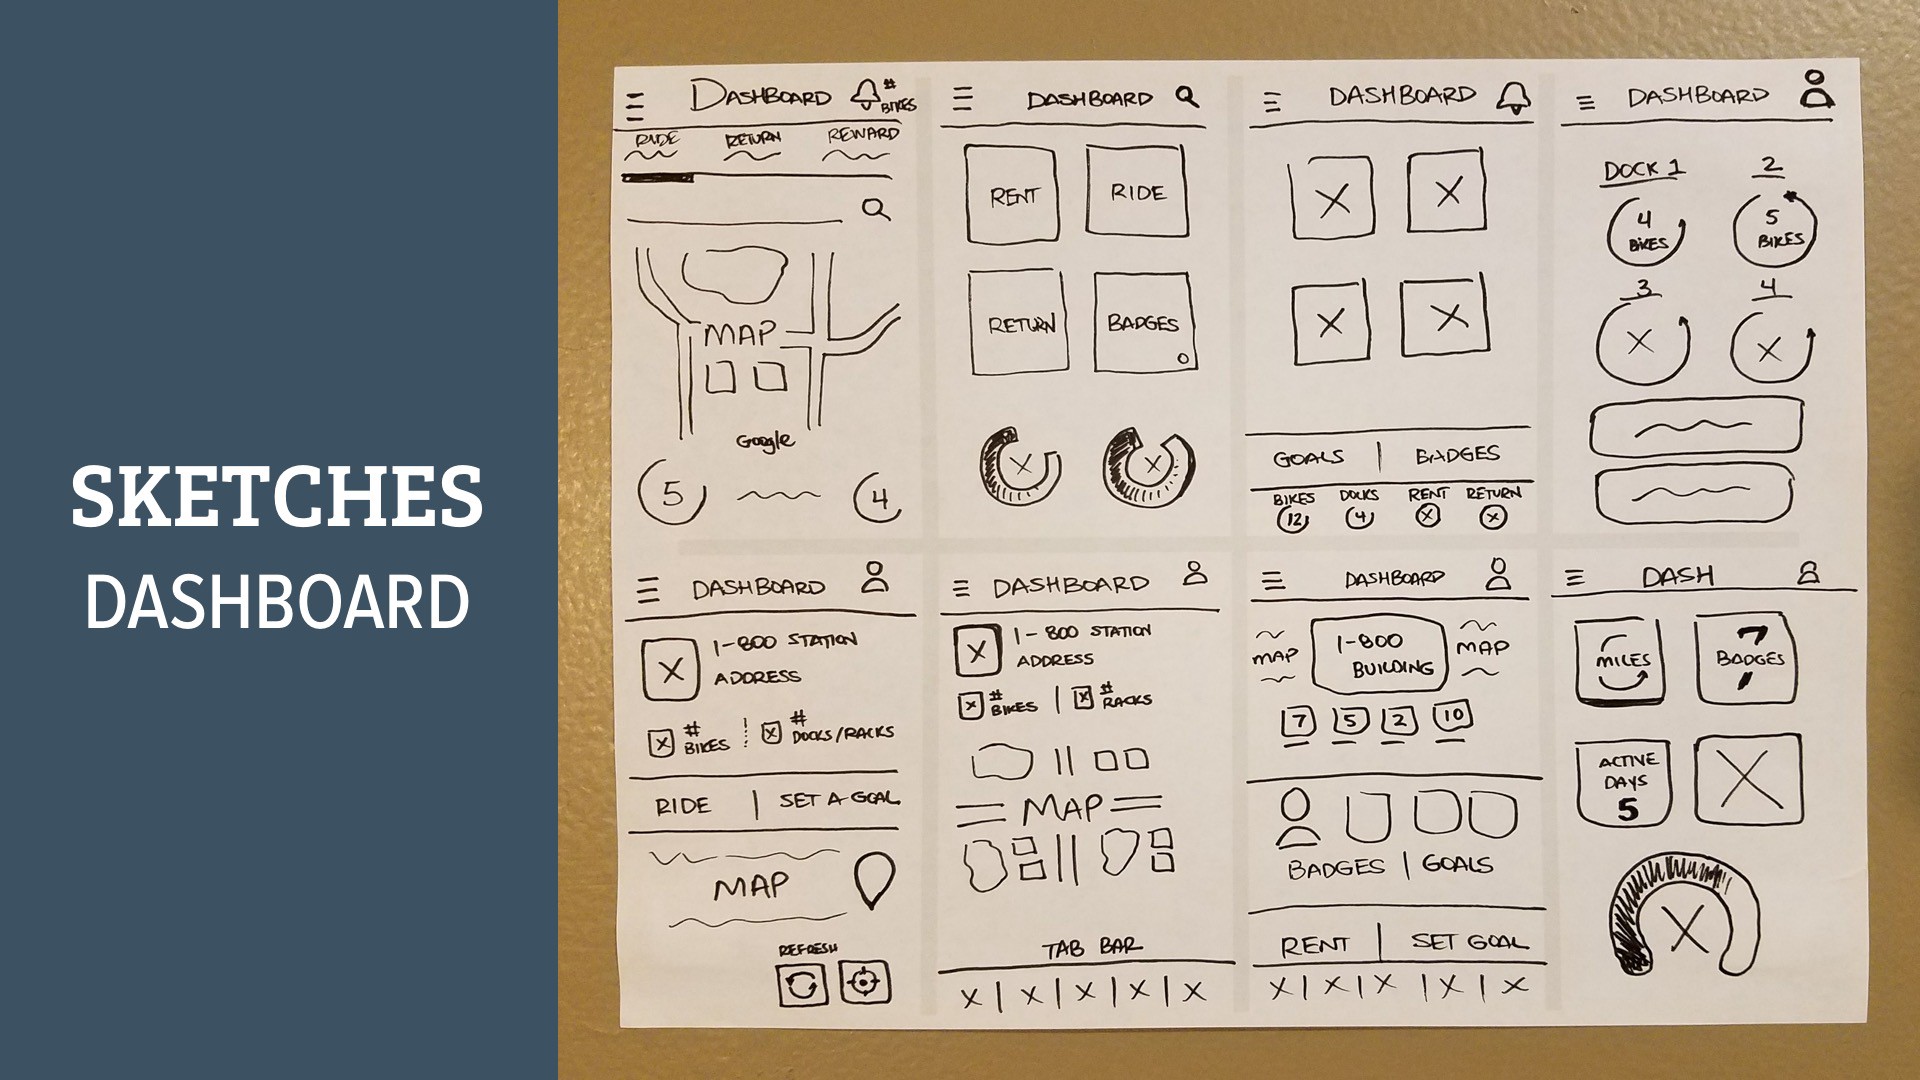 SKETCHES
DASHBOARD
DASHBOARD
#
BIKES
RIDE RETURN REWARD
MAP
Google
5 4
DASHBOARD
RENT RIDE
RETURN BADGES
X X
DASHBOARD
X X
X X
GOALS | BADGES
BIKES DOCKS RENT RETURN
12 4 X X
DASHBOARD
DOCK 1 2
4 BIKES 5 BIKES
3 4
X X
DASHBOARD
X 1-800 STATION
ADDRESS
X # BIKES X # DOCKS/RACKS
RIDE | SET A GOAL
MAP
REFRESH
DASHBOARD
X 1-800 STATION
ADDRESS
X # BIKES | X # RACKS
MAP
TAB BAR
X | X | X | X | X
DASHBOARD
MAP 1-800 BUILDING MAP
7 5 2 10
BADGES | GOALS
RENT | SET GOAL
X | X | X | X | X
DASH
MILES 7 BADGES
ACTIVE
DAYS
5 X
X